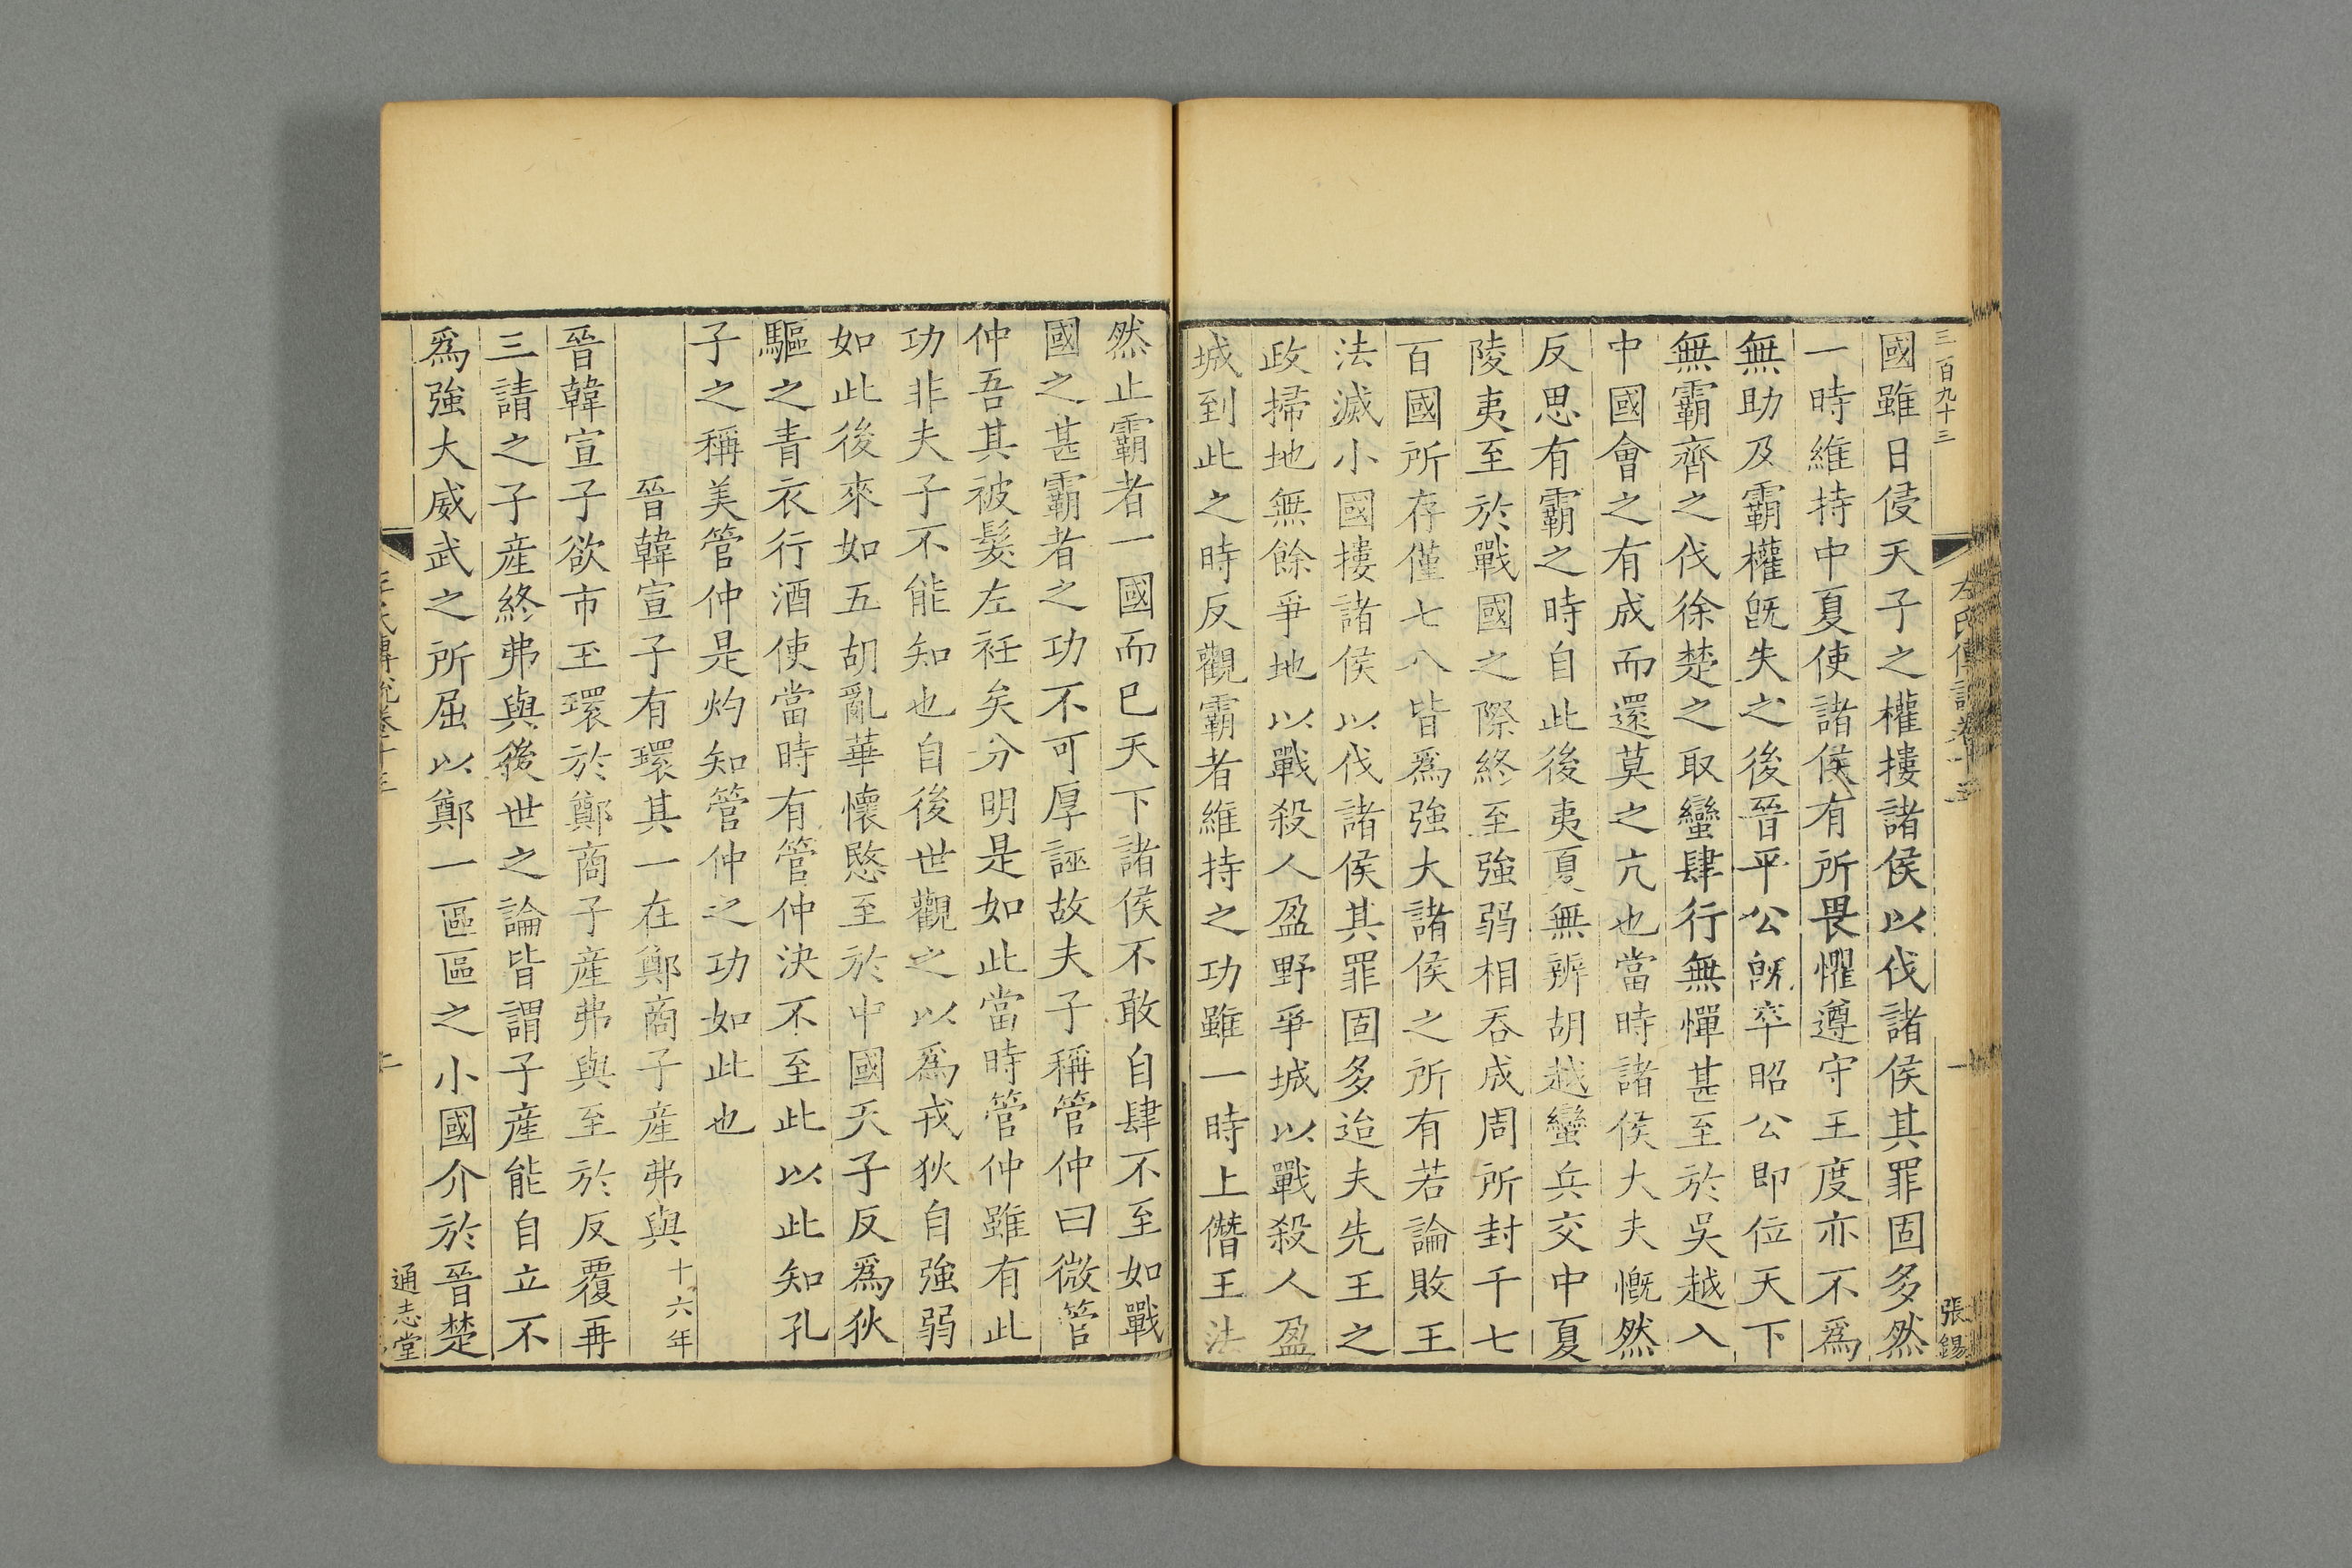 三百九十三
國雖日侵天子之權摟諸侯以伐諸侯其罪固多然
一時維持中夏使諸侯有所畏懼遵守王度亦不爲
無助及霸權旣失之後晉平公旣卒昭公即位天下
無霸齊之伐徐楚之取蠻肆行無憚甚至於吳越入
中國會之有成而還莫之亢也當時諸侯大夫慨然
反思有霸之時自此後夷夏無辨胡越蠻兵交中夏
陵夷至於戰國之際終至強弱相吞成周所封千七
百國所存僅七八皆爲強大諸侯之所有若論敗王
法滅小國摟諸侯以伐諸侯其罪固多迨夫先王之
政掃地無餘爭地以戰殺人盈野爭城以戰殺人盈
城到此之時反觀霸者維持之功雖一時上僭王法
左氏傳說卷十三
張錫
然止霸者一國而已天下諸侯不敢自肆不至如戰
國之甚霸者之功不可厚誣故夫子稱管仲曰微管
仲吾其被髮左衽矣分明是如此當時管仲雖有此
功非夫子不能知也自後世觀之以爲戎狄自強弱
如此後來如五胡亂華懷愍至於中國天子反爲狄
驅之青衣行酒使當時有管仲決不至此以此知孔
子之稱美管仲是灼知管仲之功如此也
晉韓宣子有環其一在鄭商子產弗與十六年
晉韓宣子欲市玉環於鄭商子產弗與至於反覆再
三請之子產終弗與後世之論皆謂子產能自立不
爲強大威武之所屈以鄭一區區之小國介於晉楚
左氏傳說卷十三
通志堂